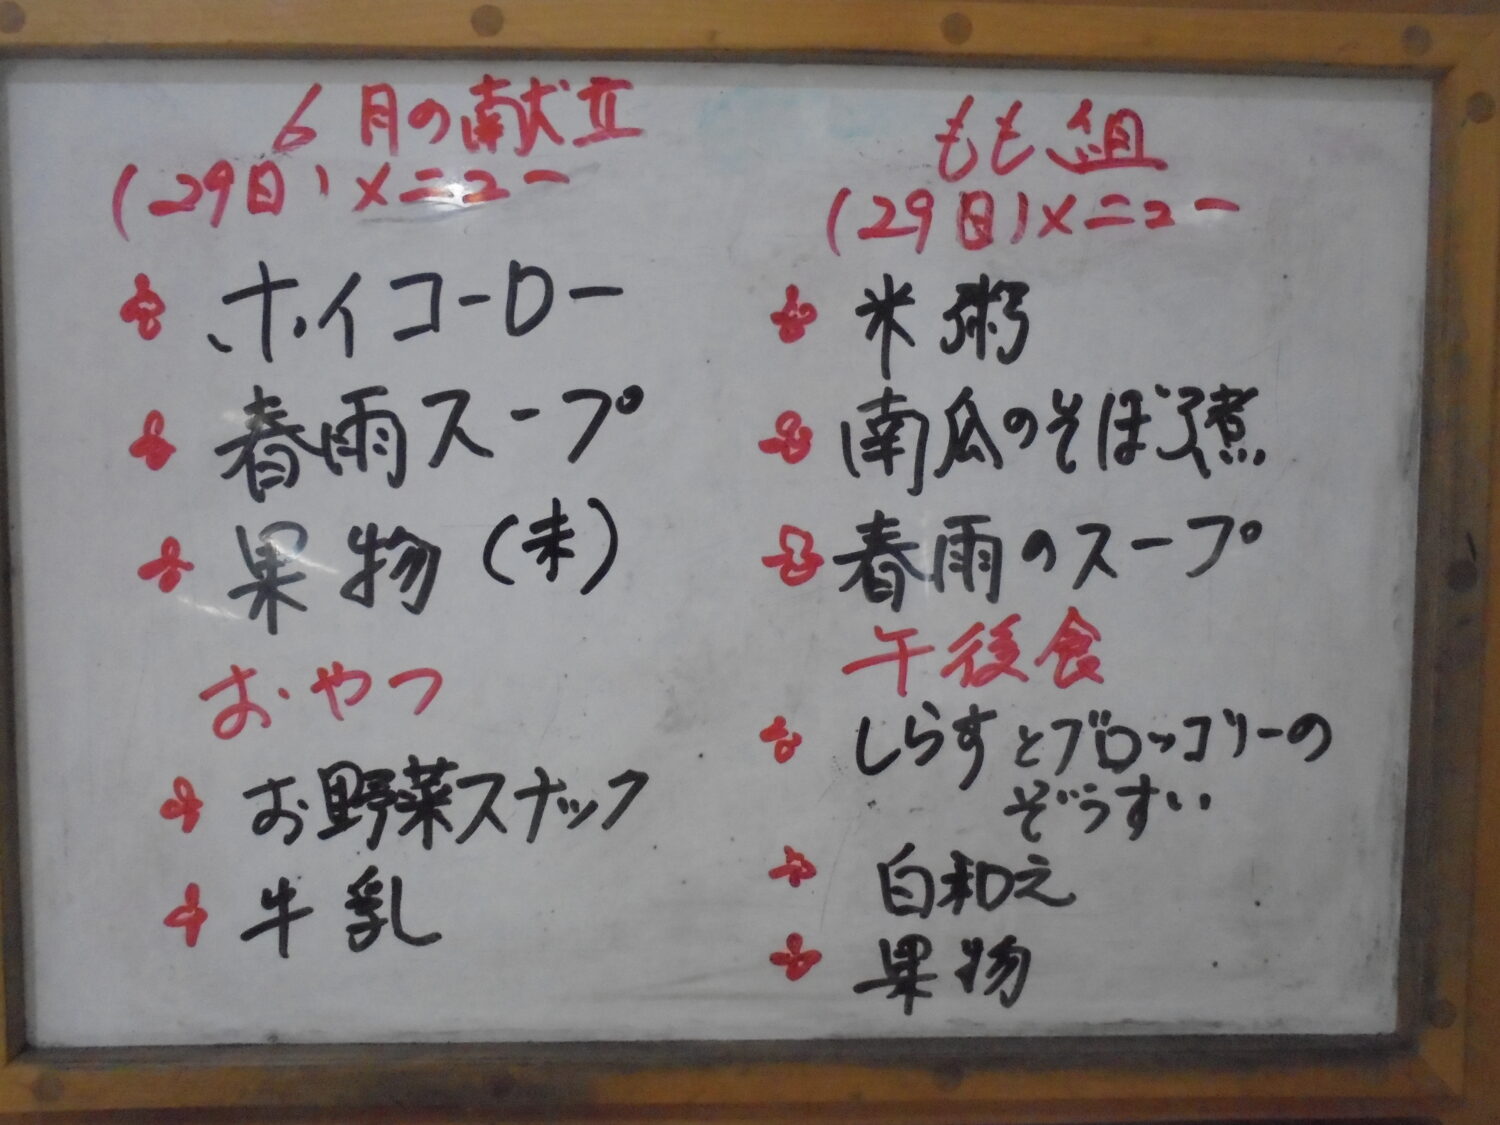 6月の献立
(29日)メニュー
ホイコーロー
春雨スープ
果物(未)
おやつ
お野菜スナック
牛乳
もも組
(29日)メニュー
米粥
南瓜のそぼろ煮
春雨のスープ
午後食
しらすとブロッコリーの
ぞうすい
白和え
果物